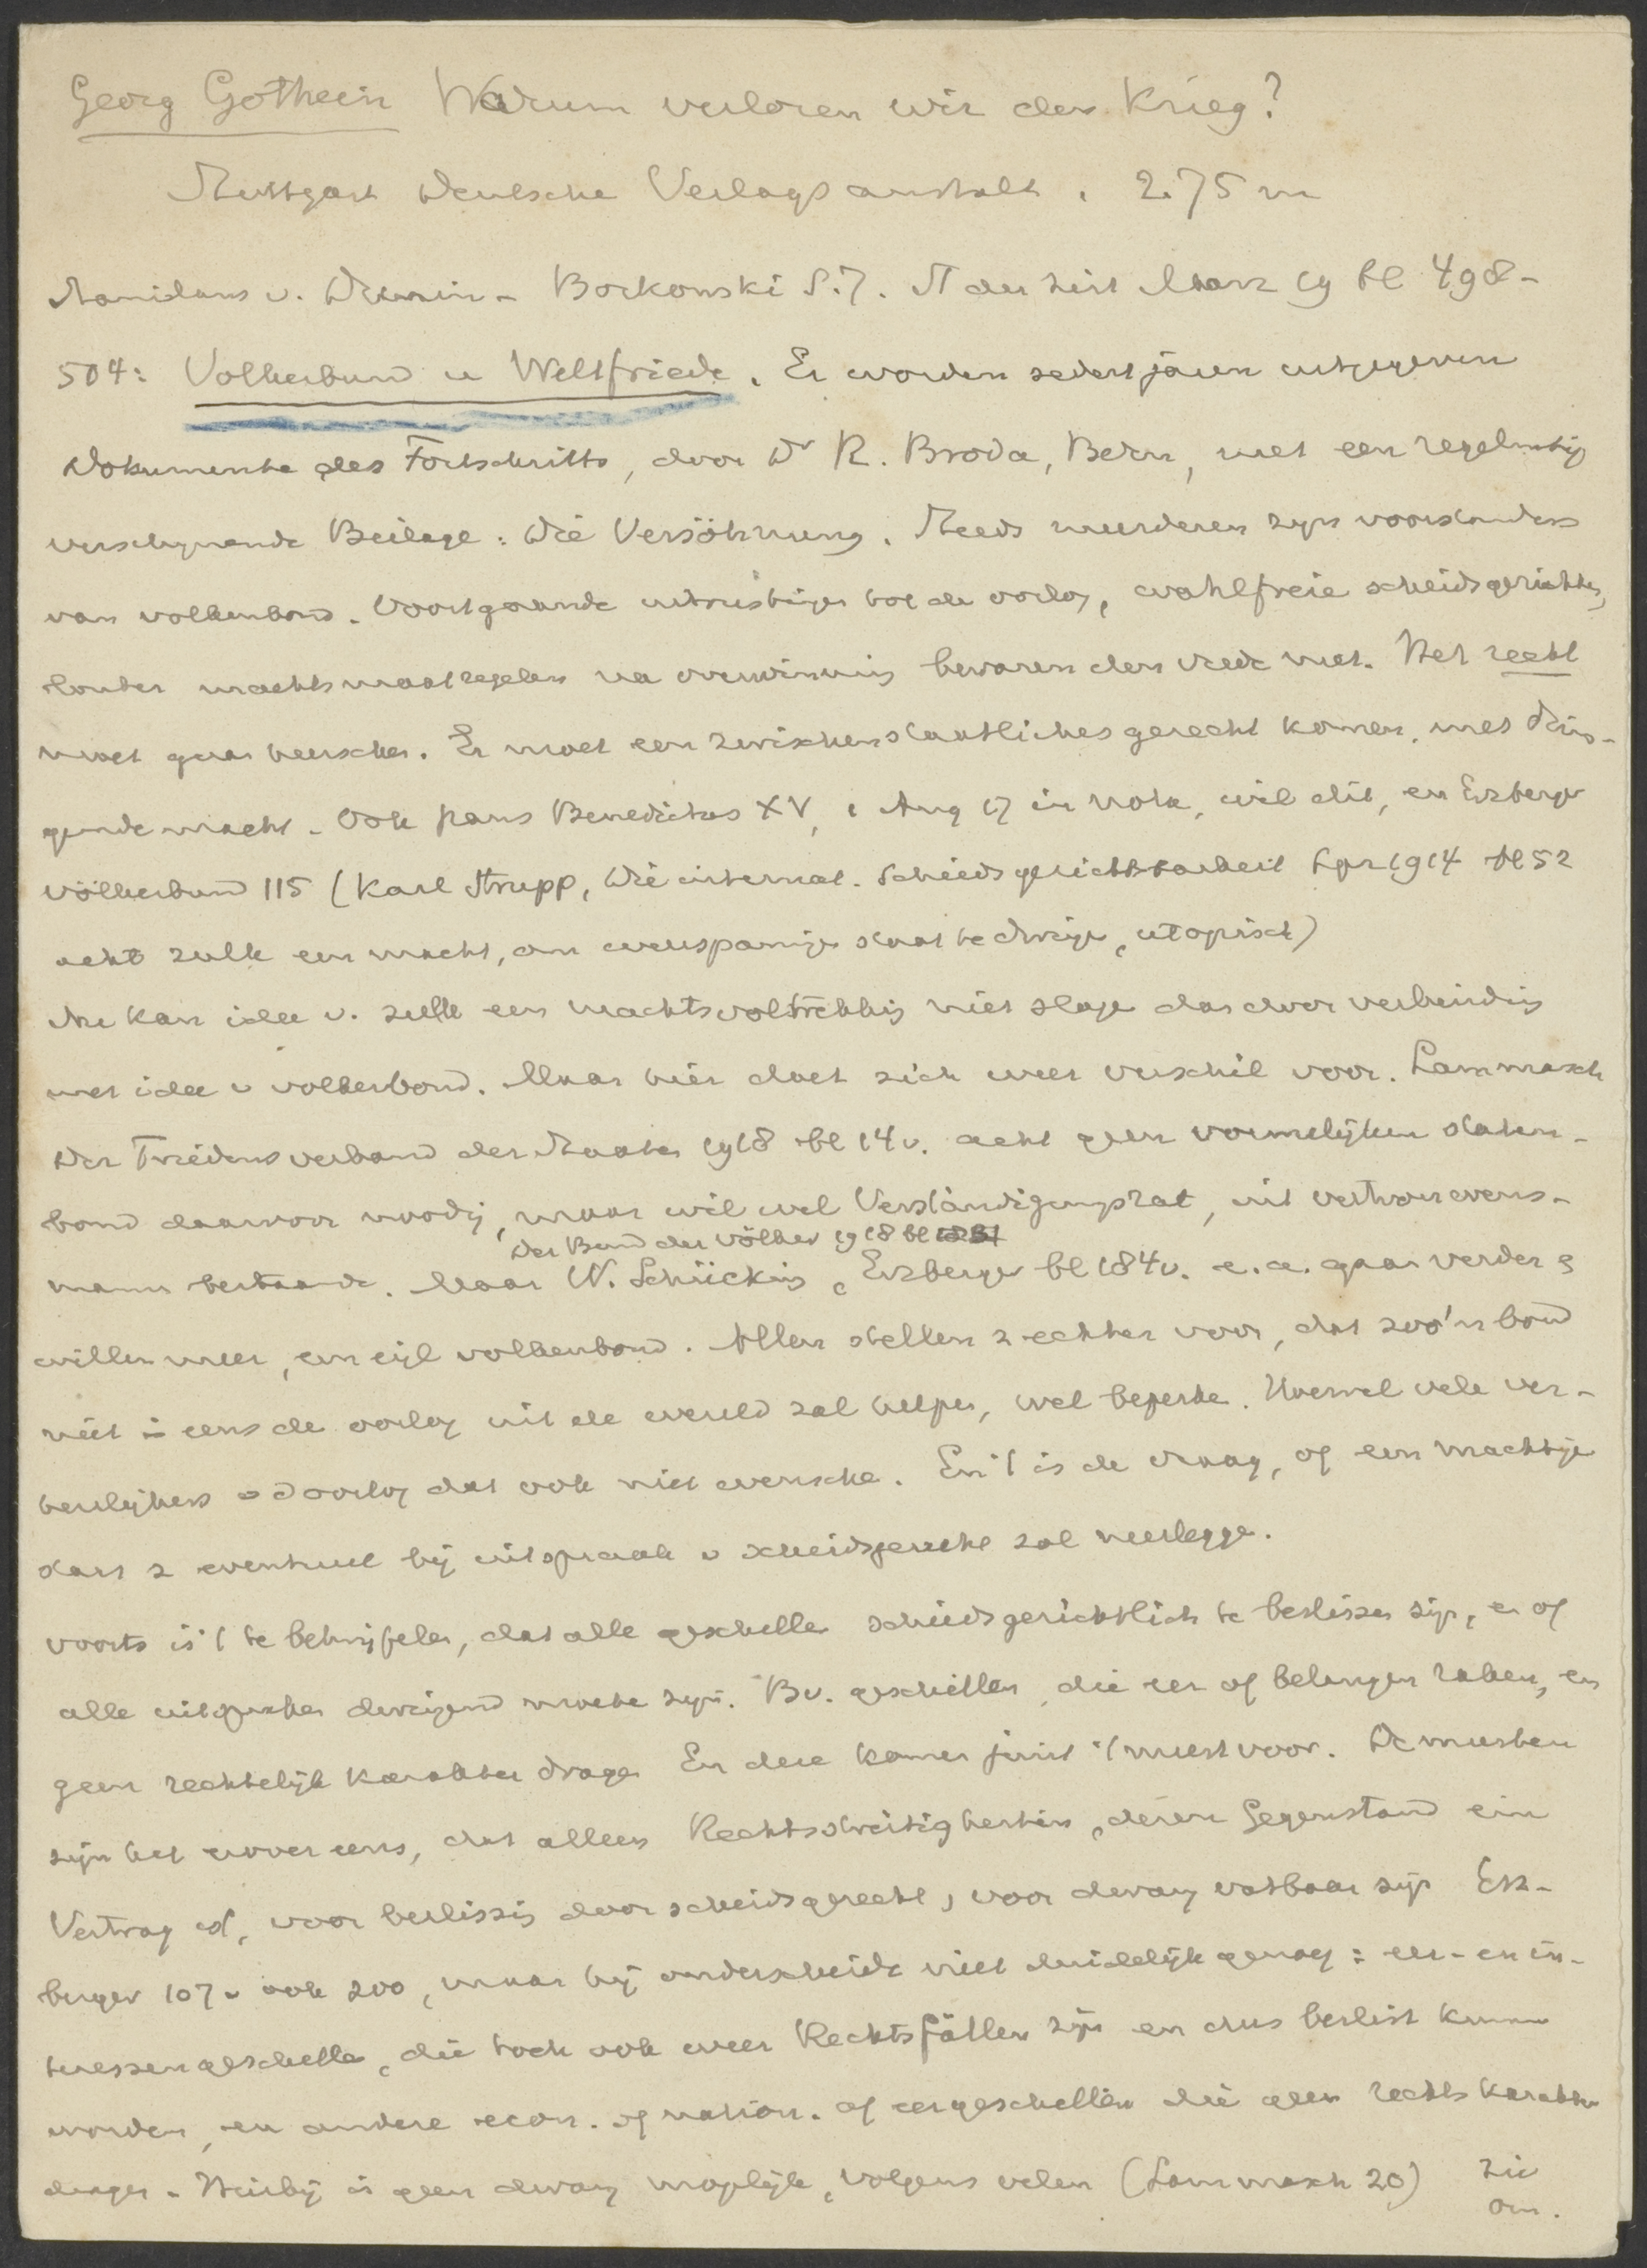 Georg Gothein Warum verloren wir den Krieg?
Stuttgart Deutsche Verlagsanstalt. 2.75 m
Stanislaus v. Dunin-Borkowski S.J. St der Zeit Marz 19 bl 498-
504: Volkerbund u Weltfriede. Er worden sedert jaren uitgegeven
Dokumente des Fortschritts, door Dr R. Broda, Bern, met een regelmatig
verschynende Beilage: Die Versöhnung. Steeds meerderen zyn voorstanders
van volkenbond. Voortgaande uitrustingen tot de oorlog, wahlfreie scheidsgerichten,
louter machtsmaatregelen na overwinning bewaren den vrede niet. Het recht
moet gaan heerschen. Er moet een zwischenstaatliches gerecht komen, met dwin-
gende macht. Ook paus Benedictus XV, 1 Aug 17 in nota, wil dit, en Erzberger
Völkerbund 115 (Karl Strupp, Die internat. Schiedsgerichtsbarkeit Lpz 1914 bl 52
acht zulk een macht, om weerspannige staat te dwingen, utopisch)
Nu kan idee v. zulk een machtsvoltrekking niet slagen dan door verbinding
met idee v volkerbond. Maar hier doet zich weer verschil voor. Lammasch
Der Friedensverband der Staaten 1918 bl 14v. acht geen vormelyken staten-
bond daarvoor noodig, maar wil wel Verständigungsrat, uit vertrouwens-
Der Bund der Völker 1918 bl
mann bestaande. Maar W. Schücking, Erzberger bl 184v. e.a. gaan verder &
willen meer, een eigl volkenbond. Allen stellen z echter voor, dat zoo'n bond
niet in eens de oorlog uit de wereld zal helpen, wel beperke. Hoewel vele ver-
heerlykers v d oorlog dat ook niet wensche. En 't is de vraag, of een machtige
staat z eventueel bij uitspraak v scheidsgerecht zal neerlegge.
voorts is 't te betwijfelen, dat alle geschillen schiedsgerichtlich te beslissen zijn, en of
alle uitspraken dwingend moete zyn. Bv. geschillen, die eer of belangen raken, en
geen rechtelijk karakter dragen En deze komen juist 't meest voor. De meesten
zijn het erover eens, dat alleen Rechtsstreitigkeiten, deren Gegenstand ein
Vertrag ist, voor beslissing door scheidsgerecht, voor dwang vatbaar zijn Erz-
berger 107v ook zoo, maar hij onderscheide niet duidelijk genoeg: eer- en in-
teressengeschillen, die toch ook weer Rechtsfällen zijn en dus beslist kunnen
worden, en andere econ. of nation. of eergeschillen die geen rechtskarakter
dragen. Hierbij is geen dwang mogelijk, volgens velen (Lammasch 20) zie
om.